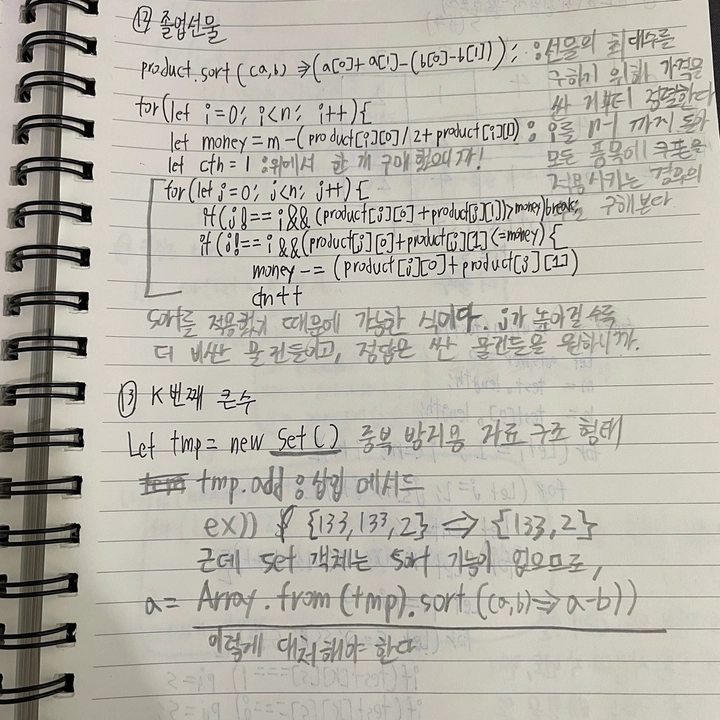 ⑫ 졸업선물
product.sort((a,b)⇒(a[0]+a[1]-(b[0]-b[1])); :선물의 최대수를
구하기 위해 가격을
싼 거부터 정렬한다
for(let i=0; i<n; i++){
let money=m-(product[i][0]/2+product[i][1]) : i를 n-1 까지 돌아
let cnt=1 :위에서 한 개 구매했으니까! 모든 품목에 쿠폰을
적용시키는 경우의
for(let j=0; j<n; j++){
if(j!==i&&(product[j][0]+product[j][1])>money)break; 구해본다.
if(j!==i&&(product[j][0]+product[j][1]<=money){
money-=(product[j][0]+product[j][1])
cnt++
sort를 적용했기 때문에 가능한 식이다. j가 높아질 수록
더 비싼 물건들이고, 정답은 싼 물건들을 원하니까.
⑬ K번째 큰수
Let tmp=new Set() 중복 방지용 자료 구조 형태
tmp.add :삽입 메서드
ex)) {133,133,2} ⇔ {133,2}
근데 set 객체는 sort 기능이 없으므로,
a= Array.from(tmp).sort((a,b)⇒a-b))
이렇게 대처해야 한다